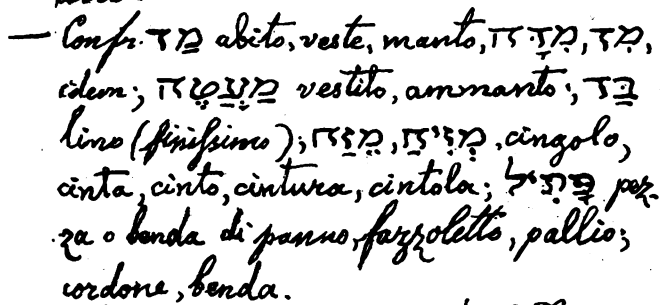 — Confr. מַד abito, veste, manto, מִדָּה, מִד,
idem; מַעֲטֶה vestito, ammanto; בַּד
lino (finissimo); מֵזַח, מְזִיחַ, cingolo,
cinta, cinto, cintura, cintola; פָּתִיל pez-
za o benda di panno, fazzoletto, pallio;
cordone, benda.